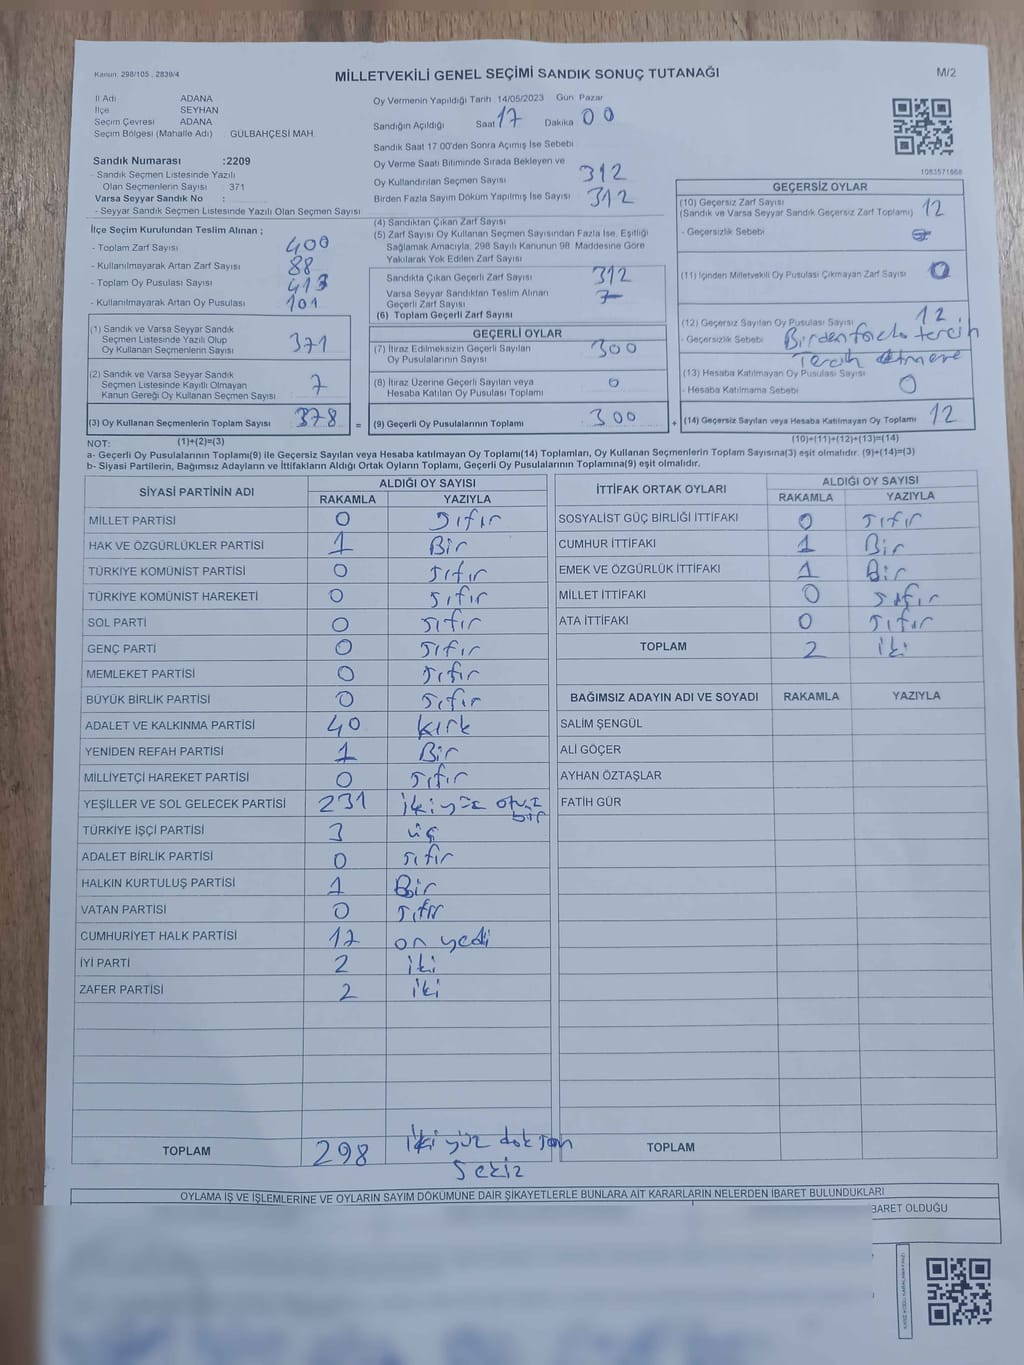 Kanun. 298/105 , 2839/4
MİLLETVEKİLİ GENEL SEÇİMİ SANDIK SONUÇ TUTANAĞI
M/2
İl Adı ADANA
İlçe SEYHAN
Seçim Çevresi ADANA
Seçim Bölgesi (Mahalle Adı) : GÜLBAHÇESİ MAH.
Sandık Numarası :2209
- Sandık Seçmen Listesinde Yazılı
Olan Seçmenlerin Sayısı : 371
Varsa Seyyar Sandık No :
- Seyyar Sandık Seçmen Listesinde Yazılı Olan Seçmen Sayısı
İlçe Seçim Kurulundan Teslim Alınan ;
- Toplam Zarf Sayısı 400
- Kullanılmayarak Artan Zarf Sayısı 88
- Toplam Oy Pusulası Sayısı 413
- Kullanılmayarak Artan Oy Pusulası 101
(1) Sandık ve Varsa Seyyar Sandık
Seçmen Listesinde Yazılı Olup
Oy Kullanan Seçmenlerin Sayısı 371
(2) Sandık ve Varsa Seyyar Sandık
Seçmen Listesinde Kayıtlı Olmayan
Kanun Gereği Oy Kullanan Seçmen Sayısı 7
(3) Oy Kullanan Seçmenlerin Toplam Sayısı 378 =
Oy Vermenin Yapıldığı Tarih 14/05/2023 Gün Pazar
Sandığın Açıldığı Saat 17 Dakika 00
Sandık Saat 17:00'den Sonra Açımış İse Sebebi
Oy Verme Saati Bitiminde Sırada Bekleyen ve
Oy Kullandırılan Seçmen Sayısı 312
Birden Fazla Sayım Döküm Yapılmış İse Sayısı 312
(4) Sandıktan Çıkan Zarf Sayısı
(5) Zarf Sayısı Oy Kullanan Seçmen Sayısından Fazla İse, Eşitliği
Sağlamak Amacıyla, 298 Sayılı Kanunun 98. Maddesine Göre
Yakılarak Yok Edilen Zarf Sayısı
Sandıkta Çıkan Geçerli Zarf Sayısı 312
Varsa Seyyar Sandıktan Teslim Alınan
Geçerli Zarf Sayısı 7
(6) Toplam Geçerli Zarf Sayısı
GEÇERLİ OYLAR
(7) İtiraz Edilmeksizin Geçerli Sayılan
Oy Pusulalarının Sayısı 300
(8) İtiraz Üzerine Geçerli Sayılan veya
Hesaba Katılan Oy Pusulası Toplamı 0
(9) Geçerli Oy Pusulalarının Toplamı 300 +
1083571668
GEÇERSİZ OYLAR
(10) Geçersiz Zarf Sayısı
(Sandık ve Varsa Seyyar Sandık Geçersiz Zarf Toplamı) 12
- Geçersizlik Sebebi
(11) İçinden Milletvekili Oy Pusulası Çıkmayan Zarf Sayısı 0
(12) Geçersiz Sayılan Oy Pusulası Sayısı 12
- Geçersizlik Sebebi Birden fazla tercih
Tercih etmeme
(13) Hesaba Katılmayan Oy Pusulası Sayısı 0
- Hesaba Katılmama Sebebi
(14) Geçersiz Sayılan veya Hesaba Katılmayan Oy Toplamı 12
NOT: (1)+(2)=(3) (10)+(11)+(12)+(13)=(14)
a- Geçerli Oy Pusulalarının Toplamı(9) ile Geçersiz Sayılan veya Hesaba katılmayan Oy Toplamı(14) Toplamları, Oy Kullanan Seçmenlerin Toplam Sayısına(3) eşit olmalıdır. (9)+(14)=(3)
b- Siyasi Partilerin, Bağımsız Adayların ve İttifakların Aldığı Ortak Oyların Toplamı, Geçerli Oy Pusulalarının Toplamına(9) eşit olmalıdır.
SİYASİ PARTİNİN ADI ALDIĞI OY SAYISI
RAKAMLA YAZIYLA
MİLLET PARTİSİ 0 sıfır
HAK VE ÖZGÜRLÜKLER PARTİSİ 1 Bir
TÜRKİYE KOMÜNİST PARTİSİ 0 sıfır
TÜRKİYE KOMÜNİST HAREKETİ 0 sıfır
SOL PARTİ 0 sıfır
GENÇ PARTİ 0 sıfır
MEMLEKET PARTİSİ 0 sıfır
BÜYÜK BİRLİK PARTİSİ 0 sıfır
ADALET VE KALKINMA PARTİSİ 40 kırk
YENİDEN REFAH PARTİSİ 1 Bir
MİLLİYETÇİ HAREKET PARTİSİ 0 sıfır
YEŞİLLER VE SOL GELECEK PARTİSİ 231 iki yüz otuz bir
TÜRKİYE İŞÇİ PARTİSİ 3 üç
ADALET BİRLİK PARTİSİ 0 sıfır
HALKIN KURTULUŞ PARTİSİ 1 Bir
VATAN PARTİSİ 0 sıfır
CUMHURİYET HALK PARTİSİ 17 on yedi
İYİ PARTİ 2 iki
ZAFER PARTİSİ 2 iki
TOPLAM 298 iki yüz doksan
sekiz
İTTİFAK ORTAK OYLARI ALDIĞI OY SAYISI
RAKAMLA YAZIYLA
SOSYALİST GÜÇ BİRLİĞİ İTTİFAKI 0 sıfır
CUMHUR İTTİFAKI 1 Bir
EMEK VE ÖZGÜRLÜK İTTİFAKI 1 Bir
MİLLET İTTİFAKI 0 sıfır
ATA İTTİFAKI 0 sıfır
TOPLAM 2 iki
BAĞIMSIZ ADAYIN ADI VE SOYADI RAKAMLA YAZIYLA
SALİM ŞENGÜL
ALİ GÖÇER
AYHAN ÖZTAŞLAR
FATİH GÜR
TOPLAM
OYLAMA İŞ VE İŞLEMLERİNE VE OYLARIN SAYIM DÖKÜMÜNE DAİR ŞİKAYETLERLE BUNLARA AİT KARARLARIN NELERDEN İBARET BULUNDUKLARI
BARET OLDUĞU